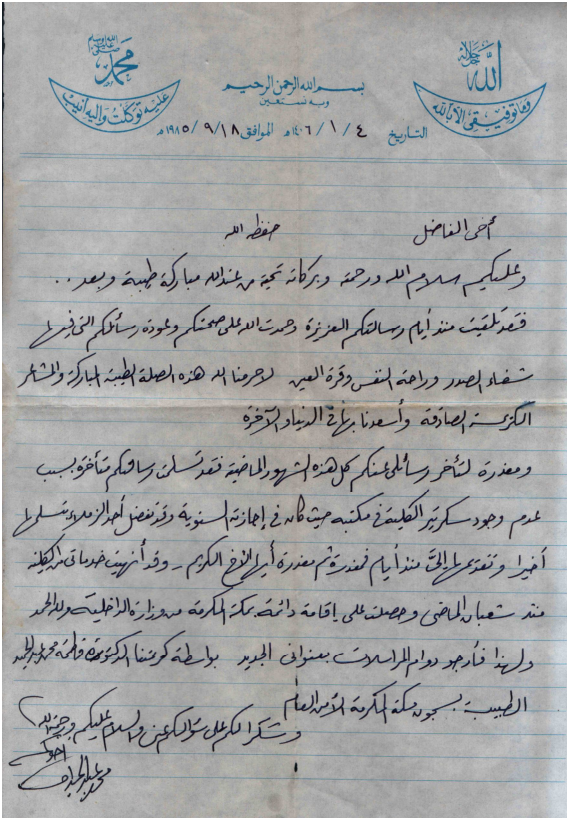 الله جل جلاله
وما توفيقي إلا بالله
محمد صلى الله عليه وسلم
عليه توكلت وإليه أنيب
بسم الله الرحمن الرحيم
وبه نستعين
التاريخ ٤ / ١ / ١٤٠٦هـ الموافق ١٨ / ٩ / ١٩٨٥م
أخي الفاضل حفظه الله
وعليكم سلام الله ورحمته وبركاته تحية من عند الله مباركة طيبة وبعد ..
فقد تلقيت منذ أيام رسالتكم العزيزة وحمدت الله على صحتكم وعودة رسائلكم التي فيها
شفاء الصدر وراحة النفس وقرة العين لا حرمنا الله هذه الصلة الطيبة المباركة والمشاعر
الكريمة الصادقة وأسعدنا بها في الدنيا والآخرة
ومعذرة لتأخر رسائلي عنكم كل هذه الشهور الماضية فقد تسلمت رسالتكم متأخرة بسبب
عدم وجود سكرتير الكلية في مكتبه حيث كان في إجازته السنوية وقد تفضل أحد الزملاء بتسلمها
أخيرا وتقديمها إليّ منذ أيام فمعذرة ثم معذرة أيها الأخ الكريم - وقد أنهيت خدماتي من الكلية
منذ شعبان الماضي وحصلت على إقامة دائمة بمكة المكرمة من وزارة الداخلية ولله الحمد
ولهذا فأرجو دوام المراسلات بعنواني الجديد بواسطة كريمتنا الدكتورة فاطمة محمد عبد الحميد
الطبيبة بسجون مكة المكرمة الأمن العام
وشكرا لكم على سؤالكم عني والسلام عليكم ورحمة الله
أخوكم
محمد عبد الحميد